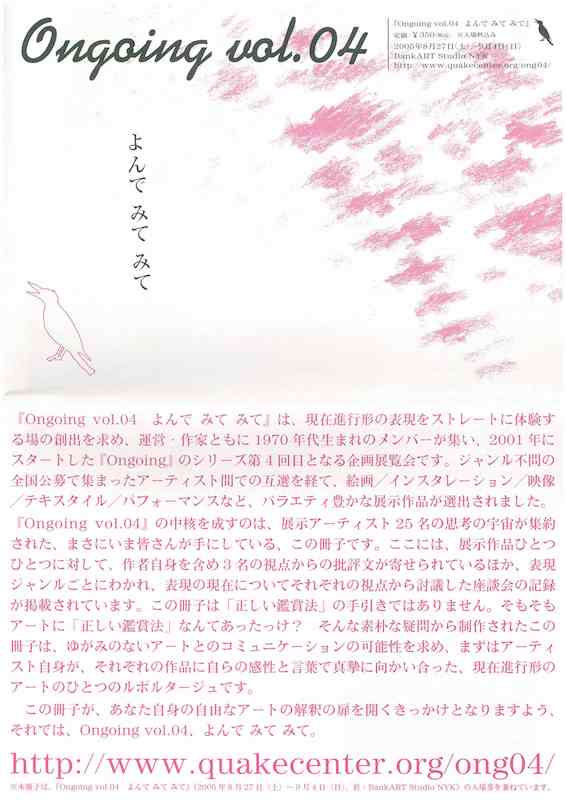 Ongoing vol.04
『Ongoing vol.04 よんで みて みて』
定価:¥350(税込) ※入場料込み
2005年8月27日(土)–9月4日(日)
BankART Studio NYK
http://www.quakecenter.org/ong04/
よんで みて みて
『Ongoing vol.04 よんで みて みて』は、現在進行形の表現をストレートに体験す
る場の創出を求め、運営・作家ともに 1970 年代生まれのメンバーが集い、2001 年に
スタートした『Ongoing』のシリーズ第 4 回目となる企画展覧会です。ジャンル不問の
全国公募で集まったアーティスト間での互選を経て、絵画／インスタレーション／映像
／テキスタイル／パフォーマンスなど、バラエティ豊かな展示作品が選出されました。
『Ongoing vol.04』の中核を成すのは、展示アーティスト 25 名の思考の宇宙が集約
された、まさにいま皆さんが手にしている、この冊子です。ここには、展示作品ひとつ
ひとつに対して、作者自身を含め 3 名の視点からの批評文が寄せられているほか、表現
ジャンルごとにわかれ、表現の現在についてそれぞれの視点から討議した座談会の記録
が掲載されています。この冊子は「正しい鑑賞法」の手引きではありません。そもそも
アートに「正しい鑑賞法」なんてあったっけ？ そんな素朴な疑問から制作されたこの
冊子は、ゆがみのないアートとのコミュニケーションの可能性を求め、まずはアーティ
スト自身が、それぞれの作品に自らの感性と言葉で真摯に向かい合った、現在進行形の
アートのひとつのルポルタージュです。
この冊子が、あなた自身の自由なアートの解釈の扉を開くきっかけとなりますよう、
それでは、Ongoing vol.04、よんで みて みて。
http://www.quakecenter.org/ong04/
※本冊子は、『Ongoing vol.04 よんで みて みて』(2005 年 8 月 27 日（土）～9 月 4 日（日）、於：BankART Studio NYK) の入場券を兼ねています。